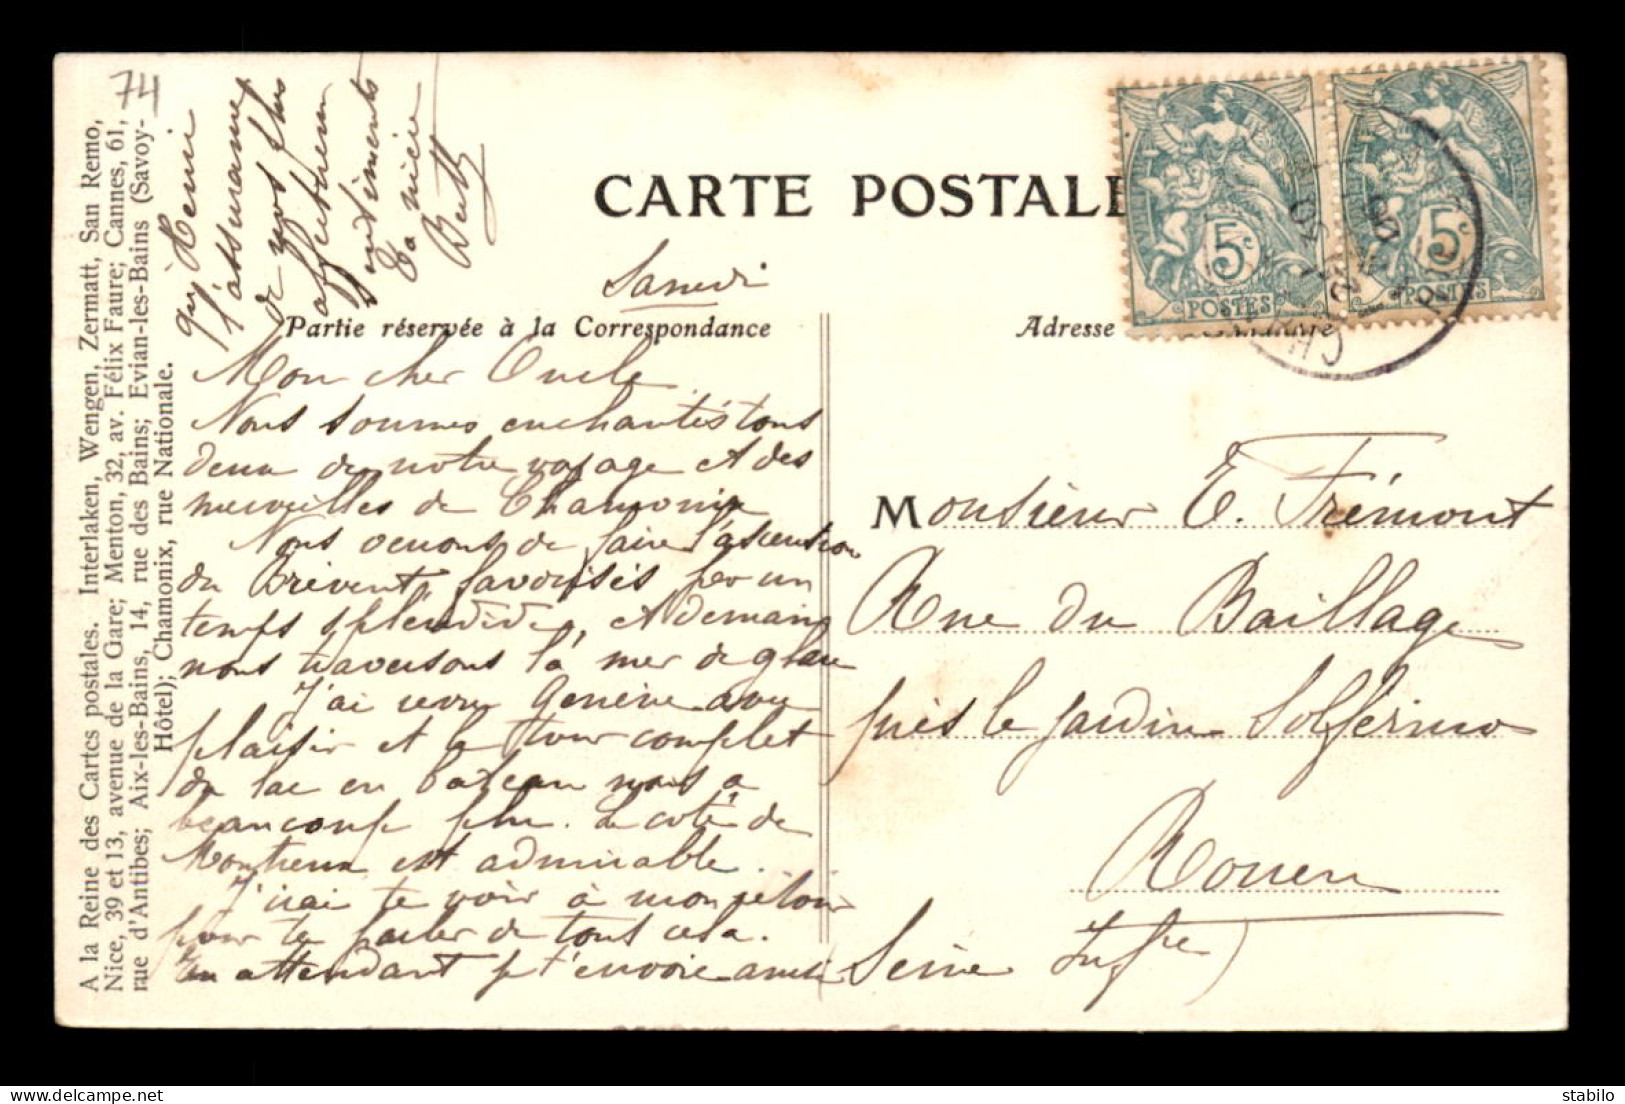 74
A la Reine des Cartes postales. Interlaken, Wengen, Zermatt, San Remo,
Nice, 39 et 13, avenue de la Gare; Menton, 32, av. Félix Faure; Cannes, 61,
rue d'Antibes; Aix-les-Bains, 14, rue des Bains; Evian-les-Bains (Savoy-
Hôtel); Chamonix, rue Nationale.
CARTE POSTALE
Samedi
Partie réservée à la Correspondance
Mon cher Oncle
Nous sommes enchantés tous
deux de notre voyage et des
merveilles de Chamonix
Nous venons de faire l'ascension
du Brévent, favorisés par un
temps splendide, et demain
nous traversons la mer de glace
J'ai revu Genève avec
plaisir et le tour complet
du lac en bateau nous a
beaucoup plu. Le côté de
Montreux est admirable.
J'irai te voir à mon retour
pour te parler de tout cela.
En attendant je t'envoie ainsi
qu'Henri
l'assurance
de nos plus
affectueux
sentiments
Ta nièce
Adresse
5c
POSTES
5c
POSTES
Monsieur E. Frémont
Rue du Baillage
près le jardin Solférino
Rouen
(Seine Infre)